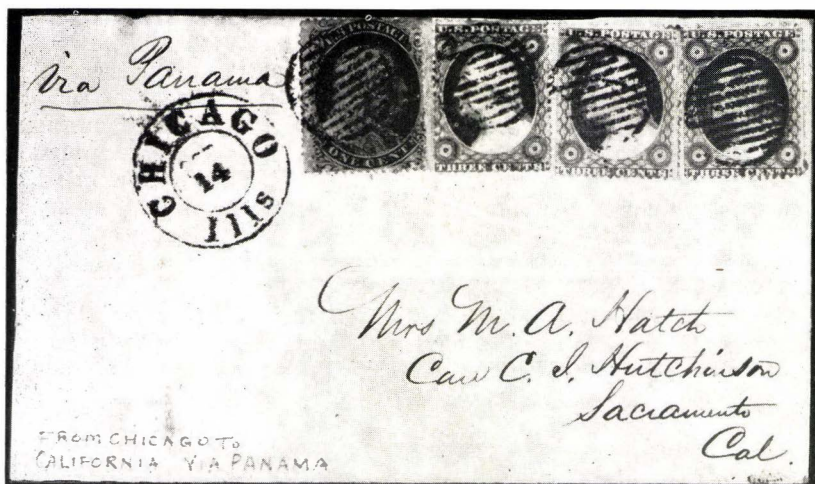 via Panama
U.S. POSTAGE
ONE CENT
U.S. POSTAGE
THREE CENTS
U.S. POSTAGE
THREE CENTS
U.S. POSTAGE
THREE CENTS
CHICAGO
14
Ills
Mrs M. A. Hatch
Care C. I. Hutchinson
Sacramento
Cal.
FROM CHICAGO TO
CALIFORNIA VIA PANAMA